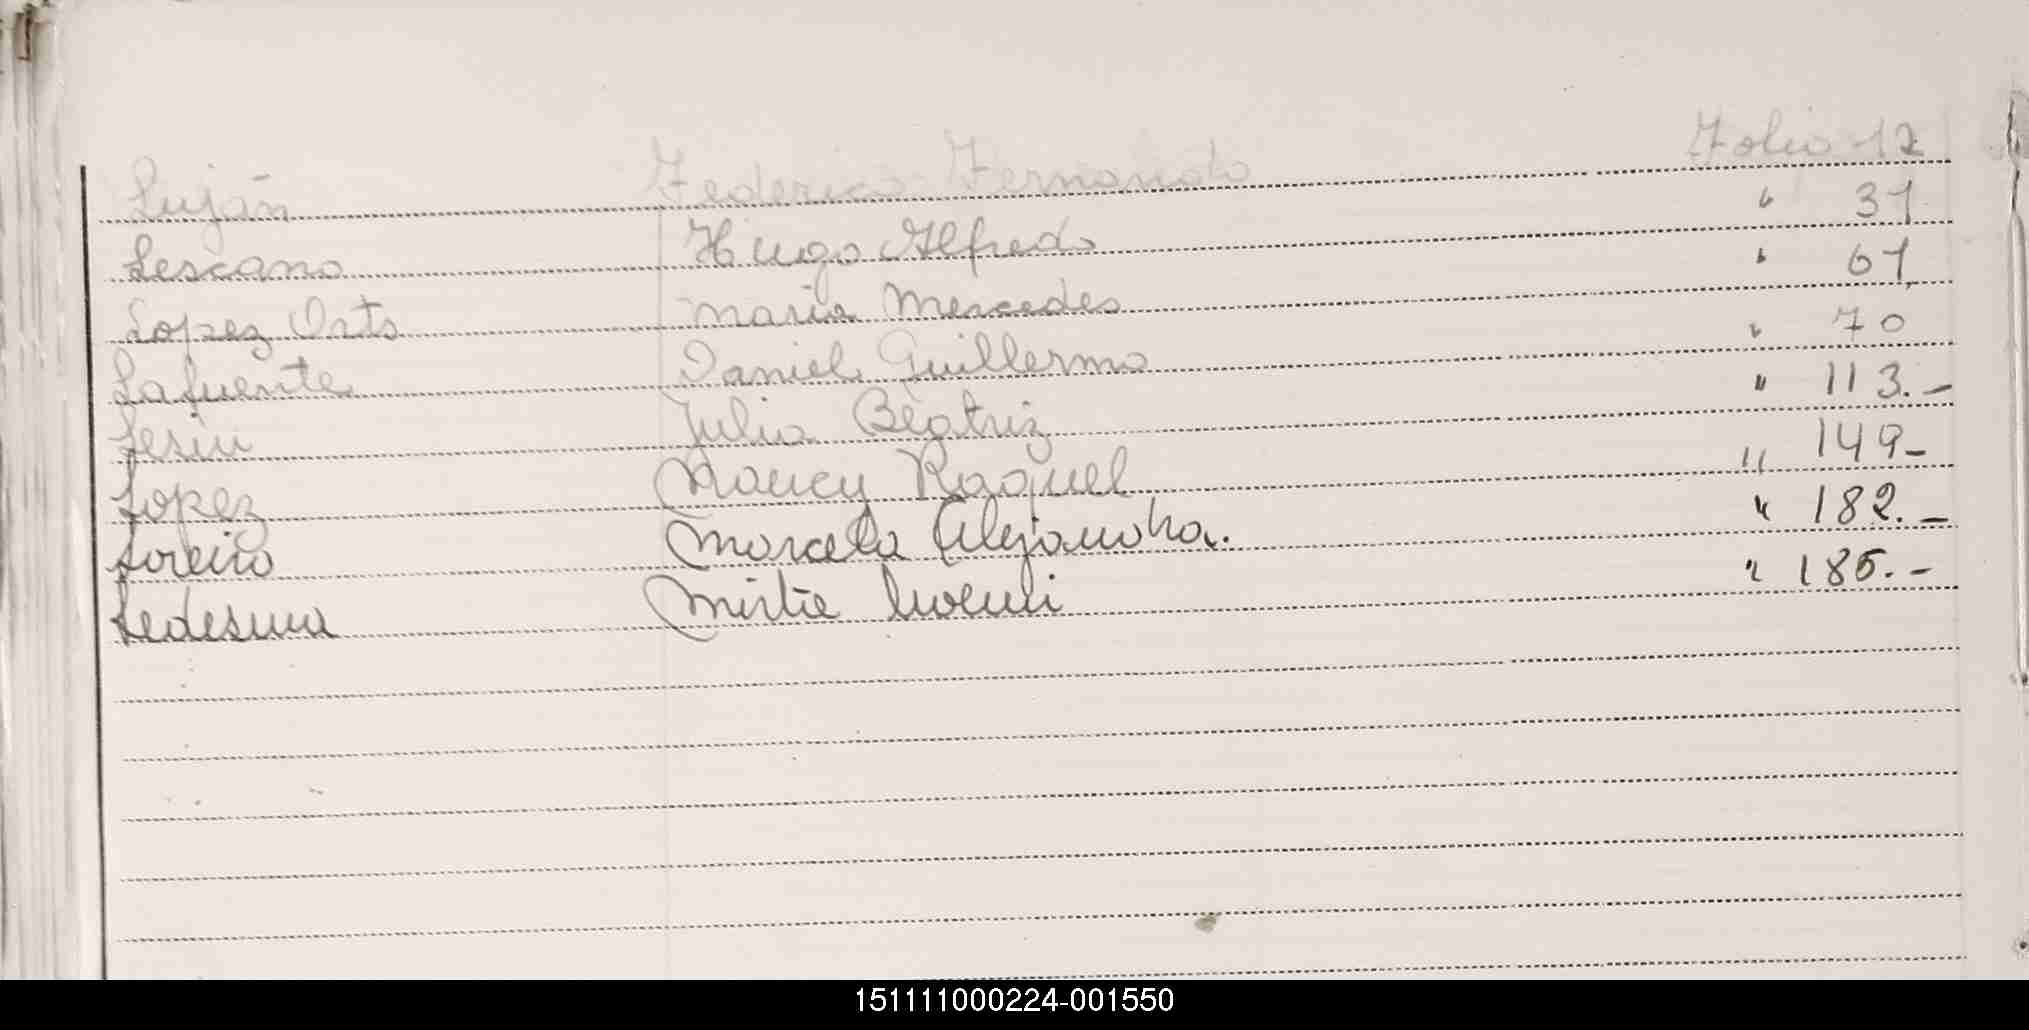 Luján Federico Fernando Folio 12
Lescano Hugo Alfredo " 31
Lopez Orts Maria Mercedes " 61
Lafuente Daniel Guillermo " 70
Julia Beatriz " 113.-
Lopez Nancy Raquel " 149-
Loreiro Marcela Alejandra. " 182.-
Ledesma Mirtie Noemi " 185.-
151111000224-001550